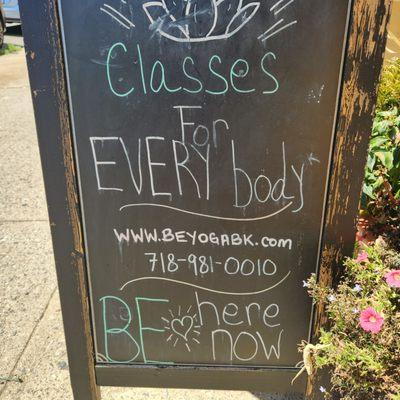 Classes
For
EVERY body
www.BEYOGABK.com
718-981-0010
BE here
now